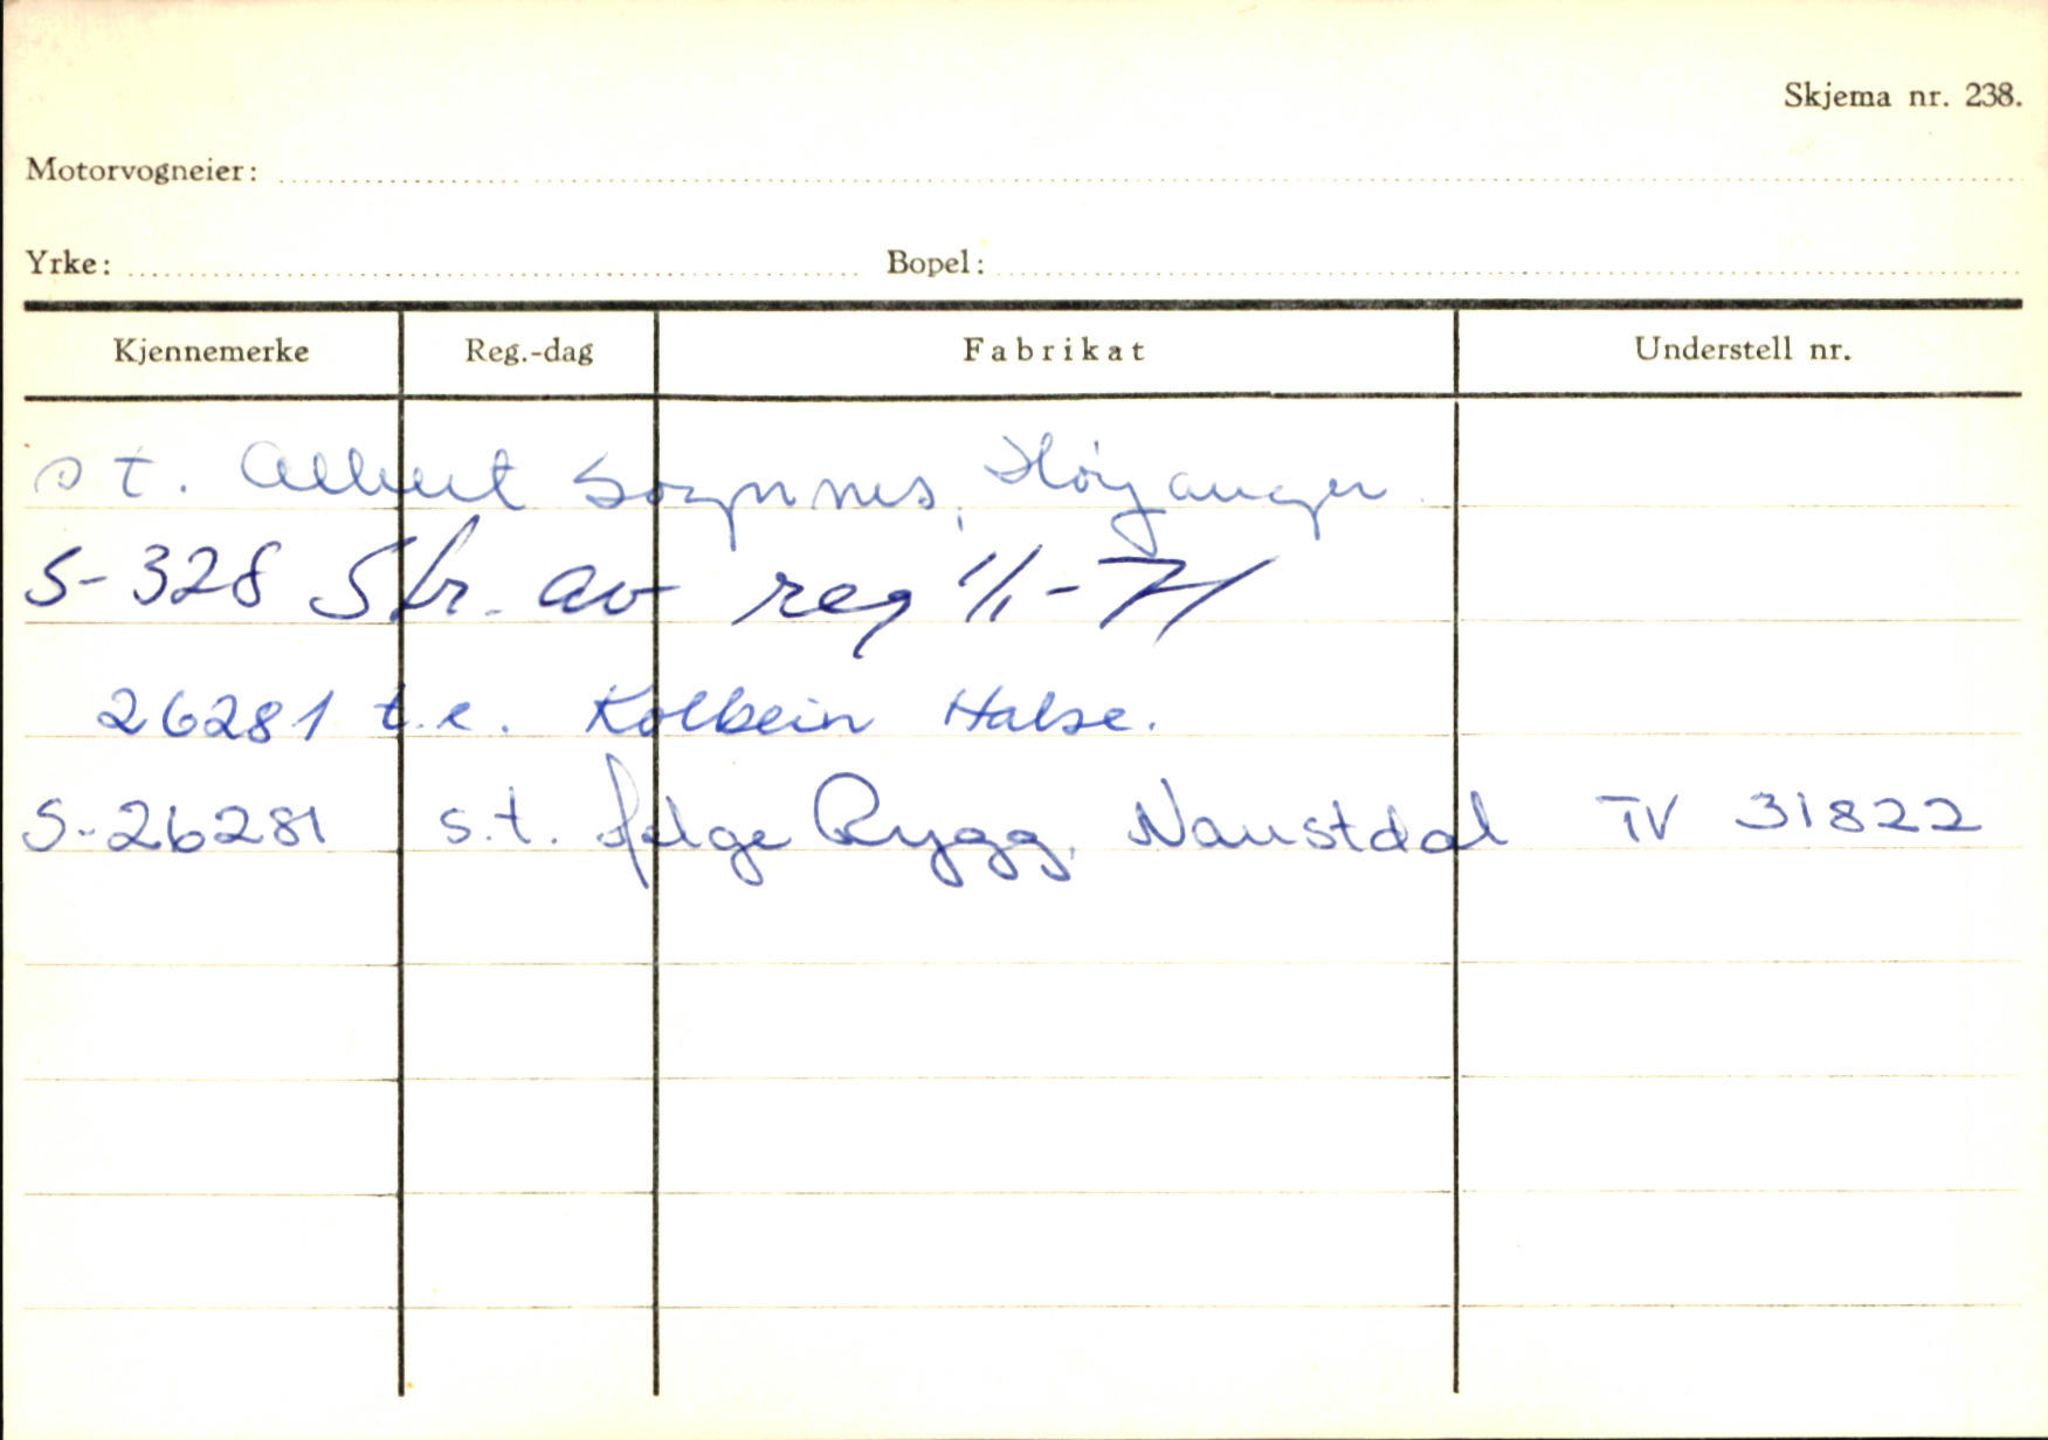 Skjema nr. 238.
Motorvogneier:
Yrke: Bopel:
Kjennemerke Reg.-dag Fabrikat Understell nr.
s t. Albert Sognnes, Höyanger
S-328 Str. av reg 1/1-71
26281 t.e. Kolbein Halse.
S-26281 s.t. Rygg, Naustdal TV 31822